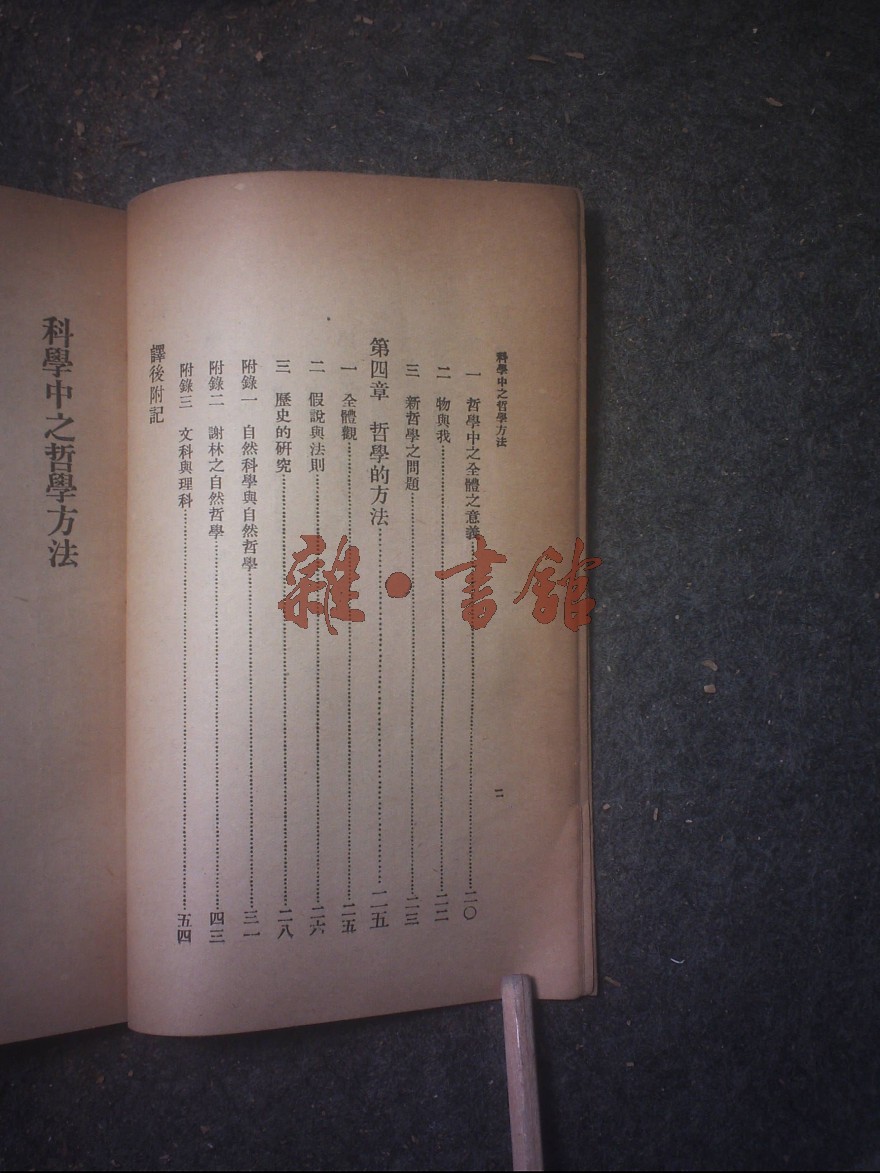 科學中之哲學方法
一 哲學中之全體之意義……二〇
二 物與我……二二
三 新哲學之問題……二三
第四章 哲學的方法……二五
一 全體觀……二五
二 假說與法則……二六
三 歷史的研究……二八
附錄一 自然科學與自然哲學……三一
附錄二 謝林之自然哲學……四三
附錄三 文科與理科……五四
譯後附記
二
科學中之哲學方法
雜·書館